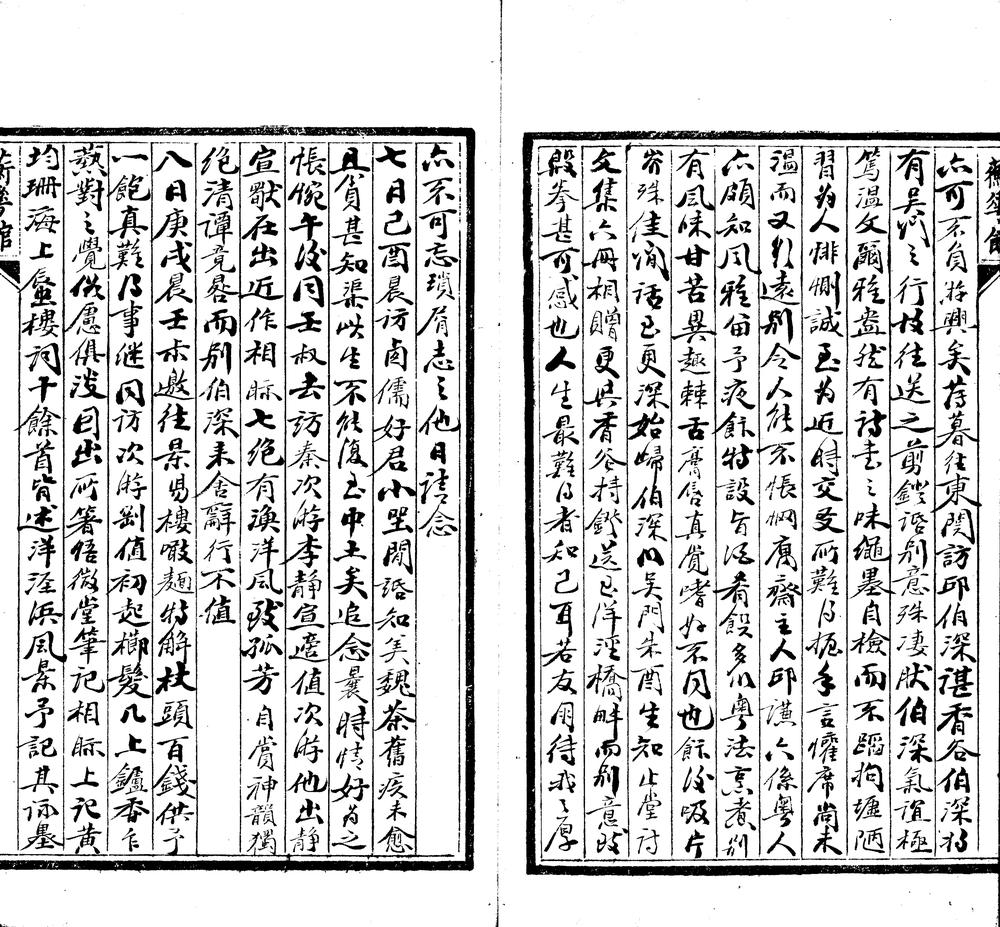 亦可不負游興矣薄暮往東関訪邱伯深諶香谷伯深將
有吳門之行故往送之剪鐙話別意殊凄肰伯深氣誼極
篤溫文爾雅盎然有詩書之味繩墨自檢而不蹈拘墟陋
習為人悱惻誠至為近時交友所難得握手言懽席尚未
溫而又引遠別令人能不悵惘腐齋主人邱謙六係粤人
亦頗知風雅留予夜飲特設旨酒肴饌多仿粤法烹煮別
有風味甘苦異趣棘舌膏唇真覺嗜好不同也飲後啜片
岕殊佳淸話已更深始歸伯深以吳門朱酉生知止堂詩
文集六冊相贈更與香谷持鐙送至洋涇橋畔而別意致
殷拳甚可感也人生最難得者知己耳若友朋待我之厚
亦不可忘瑣屑志之他日請念
七日己酉晨访卤儒好君小坐閒話知芙魏茶舊疾未愈
且貧甚知渠此生不能復至申土矣追念曩時情好为之
悵惋午後同壬叔去訪秦次游李靜宣適值次游他出靜
宣獻在出近作相眎七绝有漁洋風致孤芳自賞神韻獨
绝清谭竟晷而别伯深来舍辭行不值
八日庚戌晨壬尗邀往景昜樓啜麵特解杖頭百錢供予
一飽真難得事继同访次游剴值初起櫛髮几上鑪香乍
爇對之覺俗慮俱湥囙出所著悟微堂筆記相眎上記黃
均珊海上蜃樓詞十餘首皆述洋涇浜風景予記其詠墨